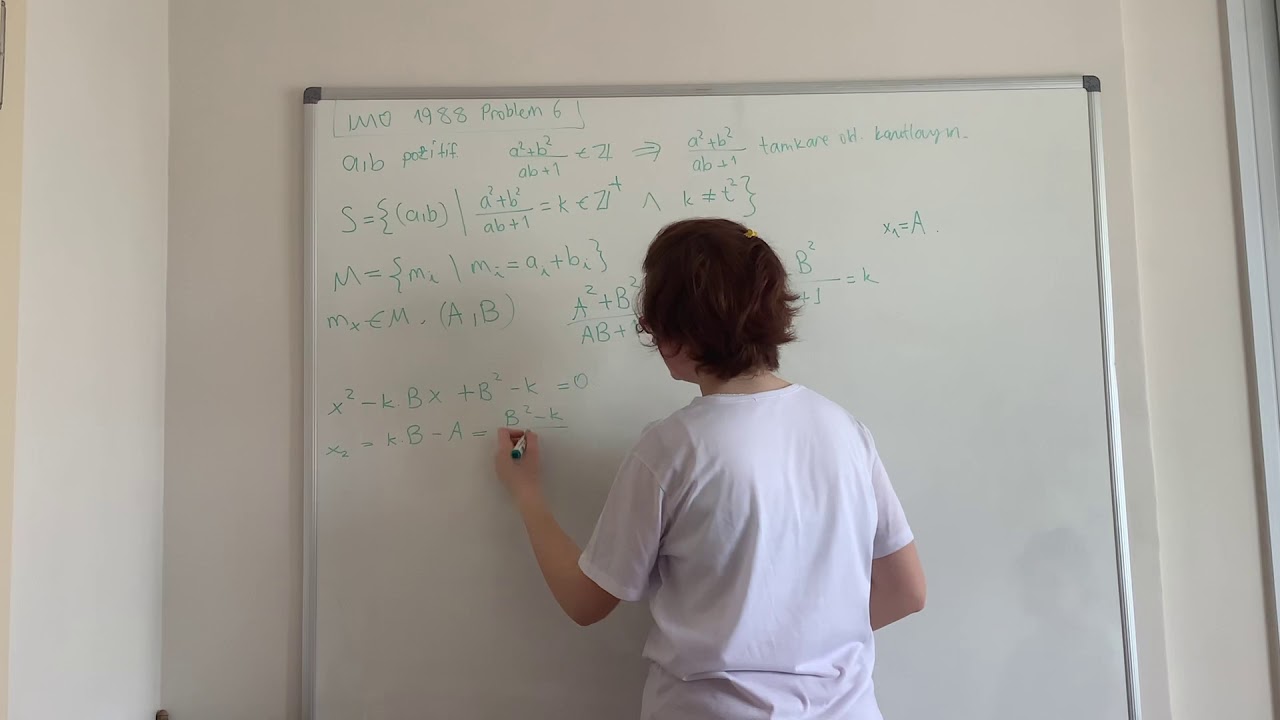 IMO 1988 Problem 6
a,b pozitif a²+b²/ab+1 ∈ ℤ ⇒ a²+b²/ab+1 tamkare old. kanıtlayın.
S={(a,b) | a²+b²/ab+1 = k ∈ ℤ⁺ ∧ k ≠ t²}
x₁=A.
M={mᵢ | mᵢ=aᵢ+bᵢ}
B²/+1 = k
mₓ∈M. (A,B) A²+B²/AB+
x²-k.Bx+B²-k=0
x₂ = k.B-A = B²-k